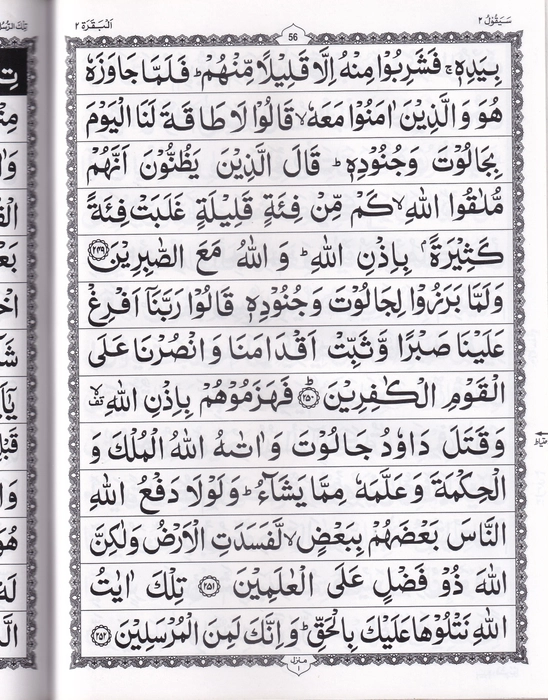 سَيَقُوْلُ ٢
56
اَلْبَقَرَة ٢
بِيَدِهٖ ۚ فَشَرِبُوْا مِنْهُ اِلَّا قَلِيْلًا مِّنْهُمْ ؕ فَلَمَّا جَاوَزَهٗ
هُوَ وَالَّذِيْنَ اٰمَنُوْا مَعَهٗ ۙ قَالُوْا لَا طَاقَةَ لَنَا الْيَوْمَ
بِجَالُوْتَ وَجُنُوْدِهٖ ؕ قَالَ الَّذِيْنَ يَظُنُّوْنَ اَنَّهُمْ
مُّلٰقُوا اللّٰهِ ۙ كَمْ مِّنْ فِئَةٍ قَلِيْلَةٍ غَلَبَتْ فِئَةً
كَثِيْرَةًۢ بِاِذْنِ اللّٰهِ ؕ وَ اللّٰهُ مَعَ الصّٰبِرِيْنَ ﴿٢٤٩﴾
وَلَمَّا بَرَزُوْا لِجَالُوْتَ وَجُنُوْدِهٖ قَالُوْا رَبَّنَاۤ اَفْرِغْ
عَلَيْنَا صَبْرًا وَّثَبِّتْ اَقْدَامَنَا وَانْصُرْنَا عَلَى
الْقَوْمِ الْكٰفِرِيْنَ ؕ ﴿٢٥٠﴾ فَهَزَمُوْهُمْ بِاِذْنِ اللّٰهِ ۙ قف
وَقَتَلَ دَاوٗدُ جَالُوْتَ وَاٰتٰىهُ اللّٰهُ الْمُلْكَ وَ
الْحِكْمَةَ وَعَلَّمَهٗ مِمَّا يَشَآءُ ؕ وَلَوْلَا دَفْعُ اللّٰهِ
النَّاسَ بَعْضَهُمْ بِبَعْضٍ ۙ لَّفَسَدَتِ الْاَرْضُ وَلٰكِنَّ
اللّٰهَ ذُوْ فَضْلٍ عَلَى الْعٰلَمِيْنَ ﴿٢٥١﴾ تِلْكَ اٰيٰتُ
اللّٰهِ نَتْلُوْهَا عَلَيْكَ بِالْحَقِّ ؕ وَاِنَّكَ لَمِنَ الْمُرْسَلِيْنَ ﴿٢٥٢﴾
منزل ١